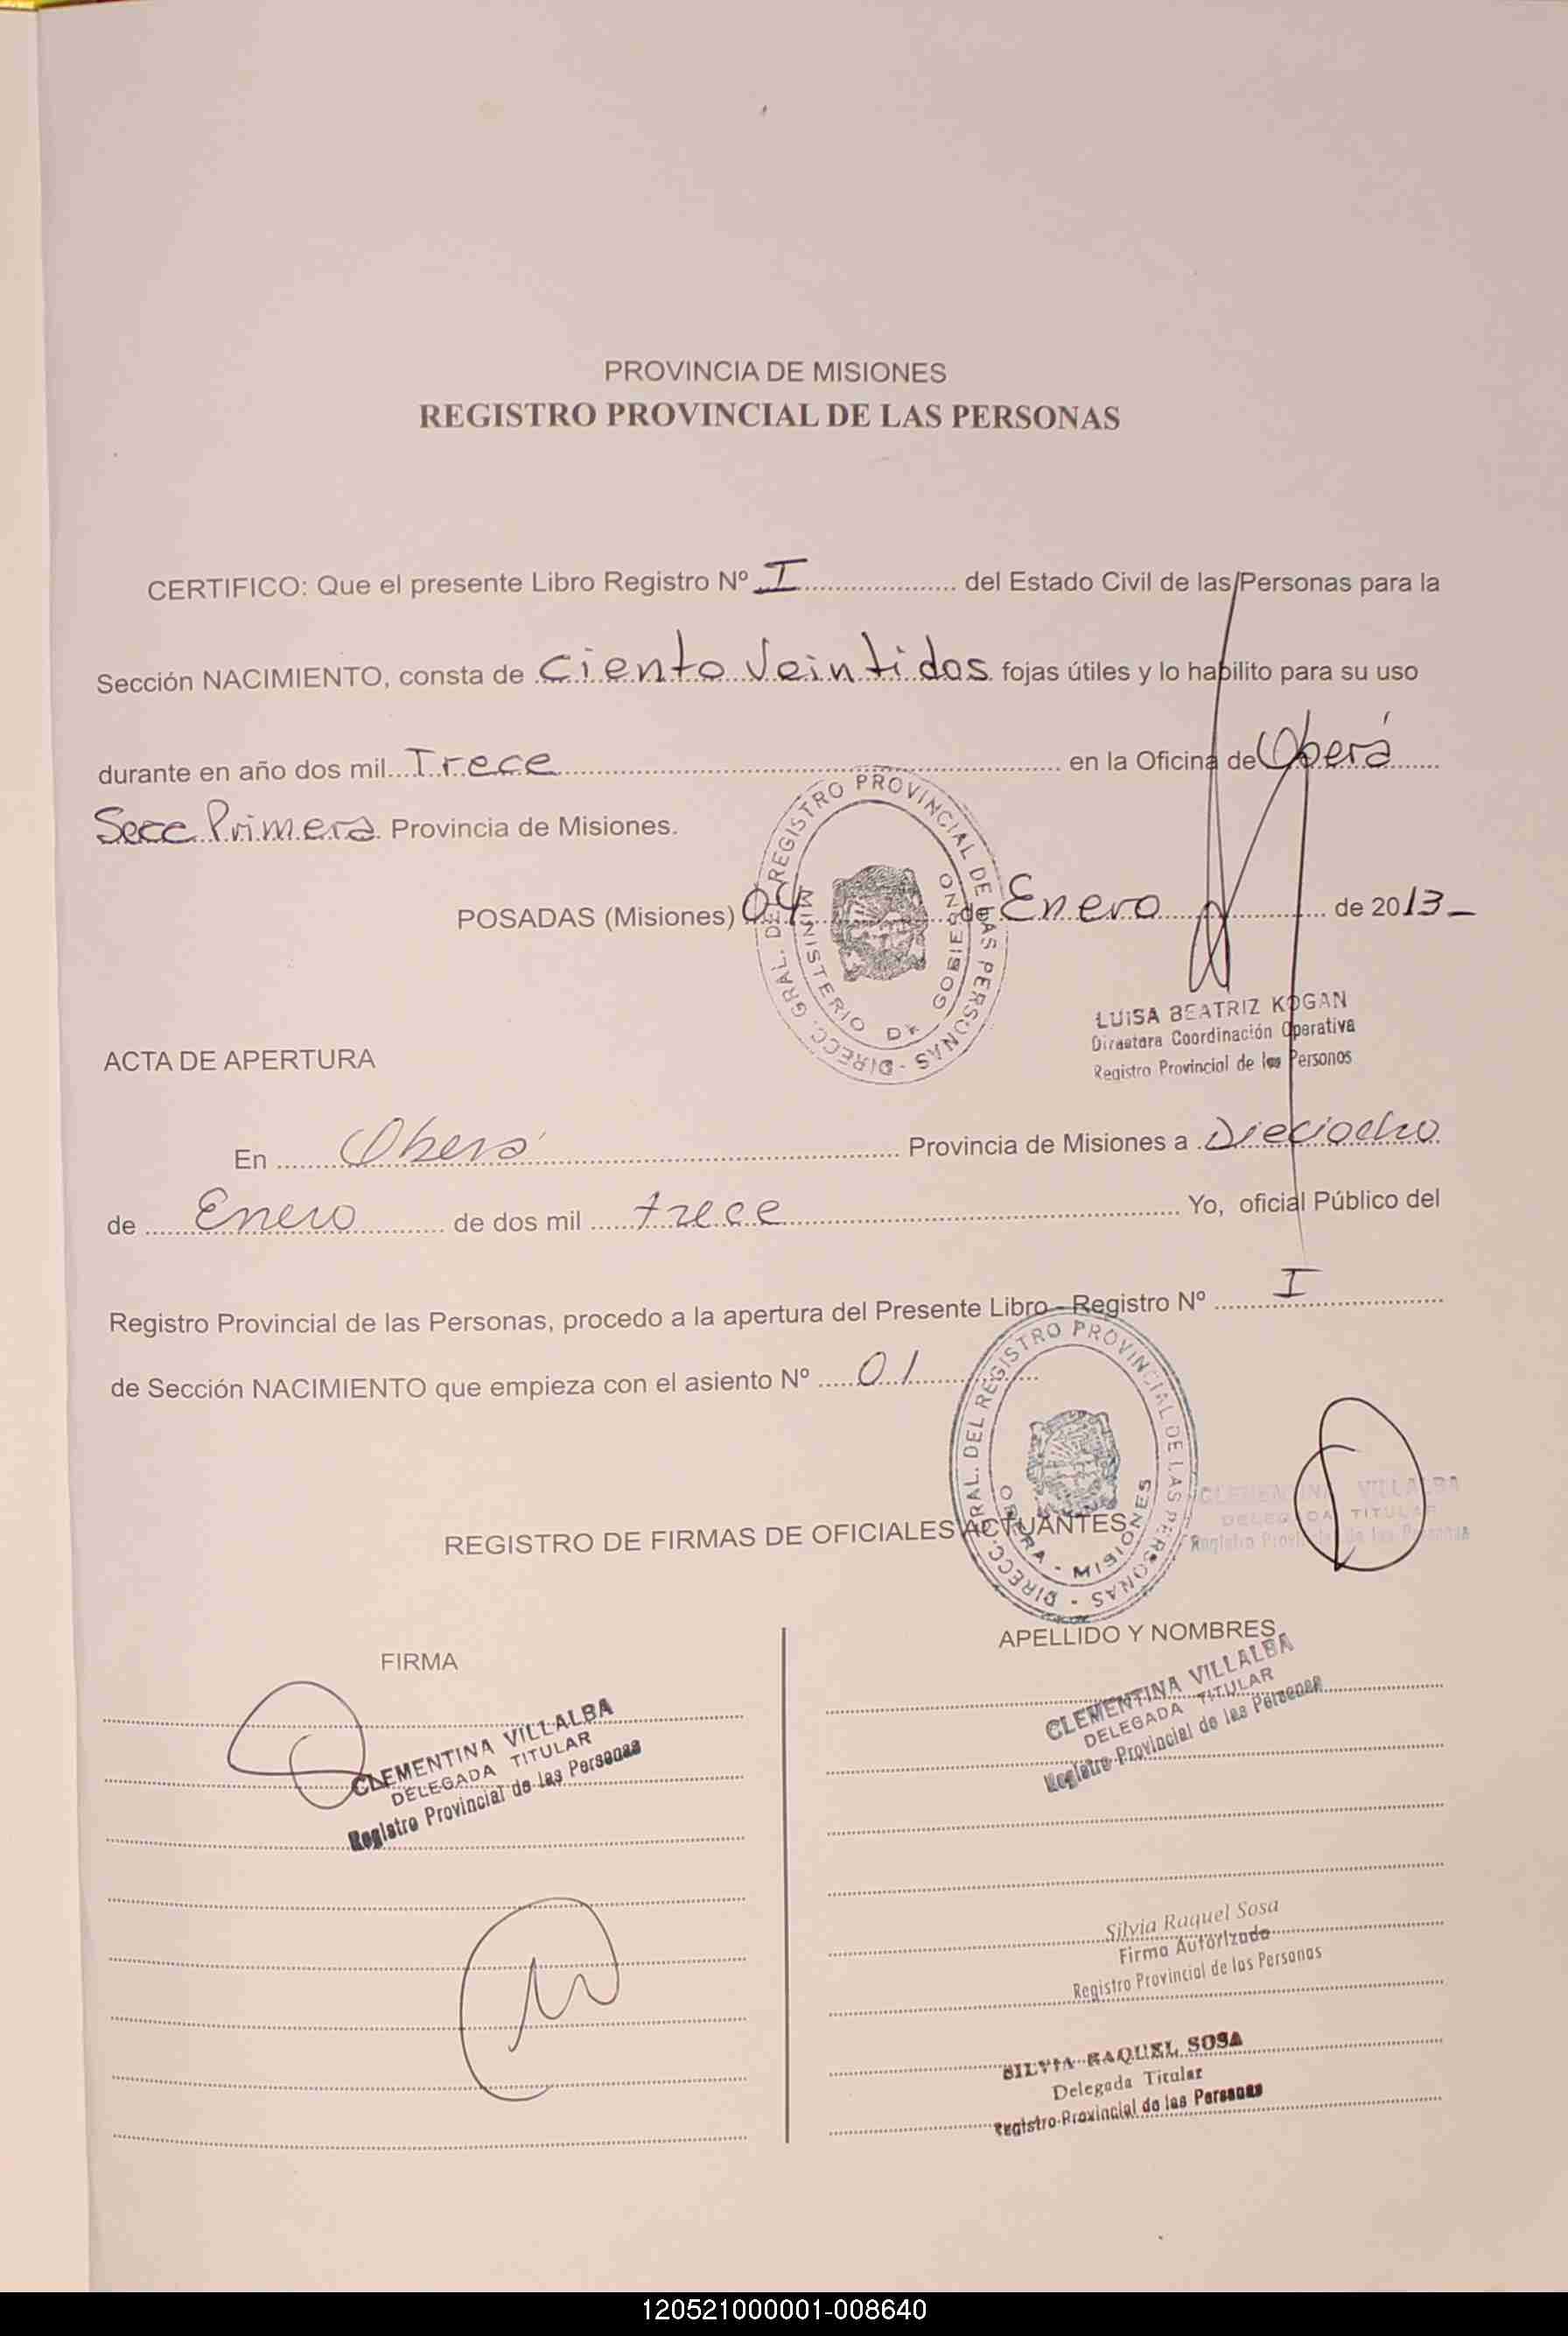 PROVINCIA DE MISIONES
REGISTRO PROVINCIAL DE LAS PERSONAS
CERTIFICO: Que el presente Libro Registro Nº I del Estado Civil de las Personas para la
Sección NACIMIENTO, consta de Ciento Veintidos fojas útiles y lo habilito para su uso
durante en año dos mil Trece en la Oficina de Oberá
Secc Primera Provincia de Misiones.
POSADAS (Misiones) 04 de Enero de 2013_
DIRECC. GRAL. DE REGISTRO PROVINCIAL DE LAS PERSONAS -
MINISTERIO DE GOBIERNO
LUISA BEATRIZ KOGAN
Directora Coordinación Operativa
Registro Provincial de las Personas
ACTA DE APERTURA
En Oberá Provincia de Misiones a Dieciocho
de Enero de dos mil trece Yo, oficial Público del
Registro Provincial de las Personas, procedo a la apertura del Presente Libro - Registro Nº I
de Sección NACIMIENTO que empieza con el asiento Nº 01
DIRECC. GRAL. DEL REGISTRO PROVINCIAL DE LAS PERSONAS -
OBERA - MISIONES
CLEMENTINA VILLALBA
DELEGADA TITULAR
Registro Provincial de las Personas
REGISTRO DE FIRMAS DE OFICIALES ACTUANTES
FIRMA
APELLIDO Y NOMBRES
CLEMENTINA VILLALBA
DELEGADA TITULAR
Registro Provincial de las Personas
CLEMENTINA VILLALBA
DELEGADA TITULAR
Registro Provincial de las Personas
Silvia Raquel Sosa
Firma Autorizada
Registro Provincial de las Personas
SILVIA RAQUEL SOSA
Delegada Titular
Registro Provincial de las Personas
120521000001-008640